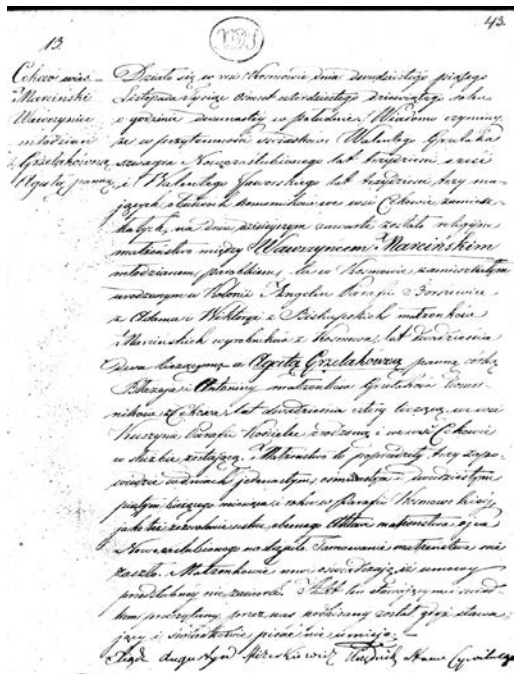 43.
13.
Cekow wieś
Marciński
Wawrzyniec
młodzian
z Grzelakowną
Agatą panną
Działo się w wsi Kosmowie dnia dwudziestego piątego
Listopada tysiąc ośmset czterdziestego dziewiątego roku
o godzinie dwunastey w południe. Wiadomo czyniemy
że w przytomności świadków Walentego Grzelaka
szwagra Nowozaślubionego lat trzydzieści sześć
i Walentego Jaworskiego lat trzydzieści trzy ma-
jących obudwóch komorników we wsi Cekowie zamiesz-
kałych, na dniu dzisiejszym zawarte zostało religijne
małżeństwo między Wawrzyncem Marcińskim
młodzianem, parobkiem, tu w Kosmowie zamieszkałym
urodzonym w Kolonii Angelin Parafii Borszewice
z Adama i Wiktoryi z Biskupskich małżonków
Marcińskich wyrobników z Kosmowa, lat dwadzieścia
dwa liczącym a Agatą Grzelakowną panną córką
Błażeja i Antoniny małżonków Grzelaków Komor-
ników z Cekowa, lat dwadzieścia cztery liczącą, we wsi
Kuszyna Parafii Kościelec zrodzoną i we wsi Cekowie
w służbie zostającą. Małżeństwo to poprzedziły trzy zapo-
wiedzie w dniach jedenastym, ośmnastym i dwudziestym
piątym bieżącego miesiąca i roku w Parafii Kosmowskiej,
jako też zezwolenie ustne obecnego Aktowi małżeństwa ojca
Nowozaślubionego nastąpiło. Tamowanie małżeństwa nie
zaszło. Małżonkowie nowi oświadczają iż umowy
przedślubnej nie zawarli. Akt ten stawającym i świad-
kom przeczytany, przez nas podpisany został gdyż stawa-
jący i świadkowie pisać nie umieją.
Xiądz Augustyn Mizeskiewicz Urzędnik Stanu Cywilnego